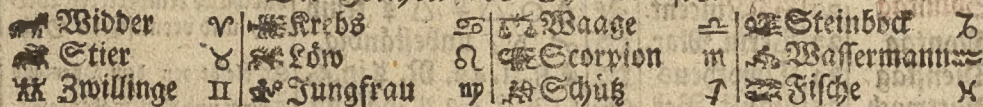 Widder ♈ Krebs ♋ Waage ♎ Steinbock ♑
Stier ♉ Löw ♌ Scorpion ♏ Wassermann ♒
Zwillinge ♊ Jungfrau ♍ Schütz ♐ Fische ♓